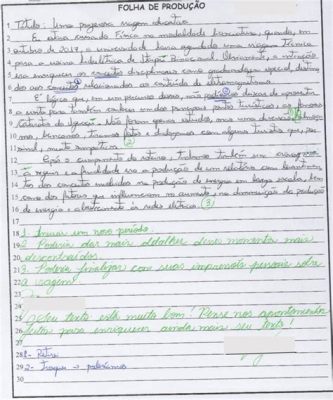 FOLHA DE PRODUÇÃO
1 Título: Uma pequena viagem educativa
2 Eu estava cursando Física na modalidade licenciatura, quando, em
3 outubro de 2017, a universidade havia agendado uma viagem técnica
4 para a usina hidrelétrica de Itaipu Binacional. Obviamente, a intenção
5 era enriquecer os conceitos disciplinares como graduandos em especial,
6 dos aos conceitos relacionados ao conteúdo de eletromagnetismo.
7 É lógico que, em um percurso desse, não podia deixar de aproveitar
8 a visita para também conhecer um dos principais pontos turísticos, as famosas
9 Cataratas do Iguaçu. Não foram apenas estudos, mas uma diversão
10 nos, brincamos, tiramos fotos e dialogamos com alguns turistas que,
11 sional, muito simpáticos. (2)
12 Após o cumprimento do roteiro, tivemos também em
13 a viagem e a finalidade era a produção de um relatório com
14 tos dos conceitos envolvidos na produção de energia em larga escala, bem
15 como dos fatores que influenciam no aumento ou diminuição da produção
16 de energia e abastecimento às redes elétricas. (3)
17
18 1. Iniciar um novo período.
19 2. Poderia dar mais detalhes desses momentos mais
20 descontraídos.
21 3. Poderia finalizar com suas impressões pessoais sobre
22 a viagem!
23
24
25 O seu texto está muito bom! Pense nos apontamentos
26 feitos para enriquecer ainda mais seu texto!
27
28 1- Retire
29 2- Troque → poderíamos
30